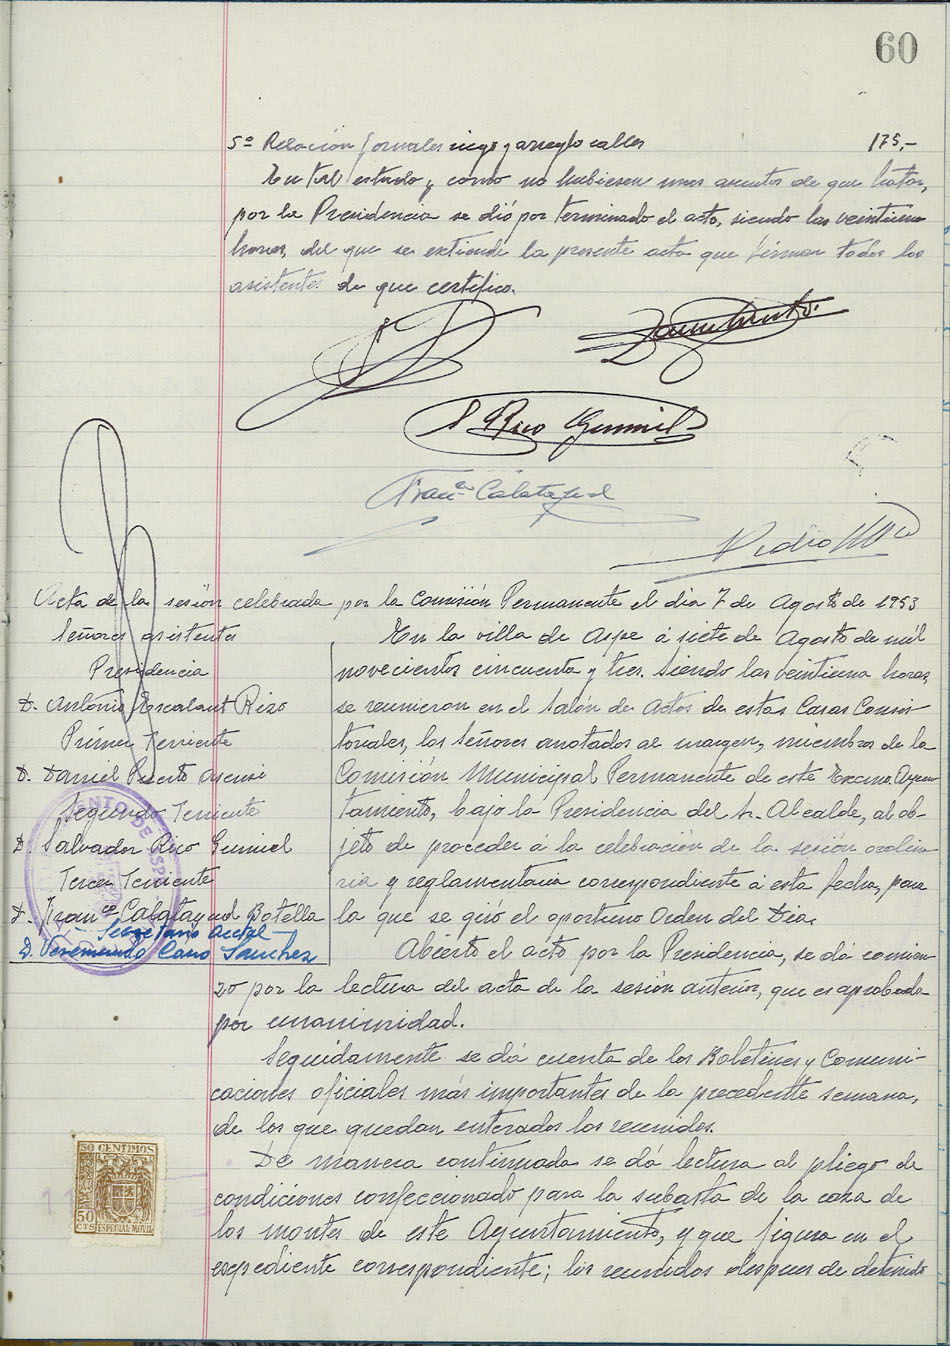 60
5º Relación jornales riego y arreglo calles 175,-
En tal estado y como no hubiesen mas asuntos de que tratar,
por la Presidencia se dió por terminado el acto, siendo las veintiuna
horas, del que se extiende la presente acta que firman todos los
asistentes de que certifico.
S Rico Gumiel
Franco Calatayud
Acta de la sesión celebrada por la Comisión Permanente el dia 7 de Agosto de 1953
Señores asistentes
Presidencia
D. Antonio Escalant Rizo
Primer Teniente
D. Daniel Puerto Asensi
Segundo Teniente
D. Salvador Rico Gumiel
Tercer Teniente
D. Franco Calatayud Botella
Secretario acctal
D. Veremundo Cano Sánchez
En la villa de Aspe á siete de Agosto de mil
novecientos cincuenta y tres. siendo las veintiuna horas,
se reunieron en el Salón de Actos de estas Casas Consis-
toriales, los señores anotados al margen, miembros de la
Comisión Municipal Permanente de este Excmo. Ayun-
tamiento, bajo la Presidencia del Sr. Alcalde, al ob-
jeto de proceder á la celebración de la sesión ordina-
ria y reglamentaria correspondiente á esta fecha, para
la que se giró el oportuno Orden del Dia.
Abierto el acto por la Presidencia, se dá comien-
zo por la lectura del acta de la sesión anterior, que es aprobada
por unanimidad.
Seguidamente se dá cuenta de los Boletines y Comuni-
caciones oficiales más importantes de la precedente semana,
de los que quedan enterados los reunidos.
De manera continuada se dá lectura al pliego de
condiciones confeccionado para la subasta de la caza de
los montes de este Ayuntamiento, y que figura en el
expediente correspondiente; los reunidos despues de detenido
50 CENTIMOS
50
CTS ESPECIAL MOVIL